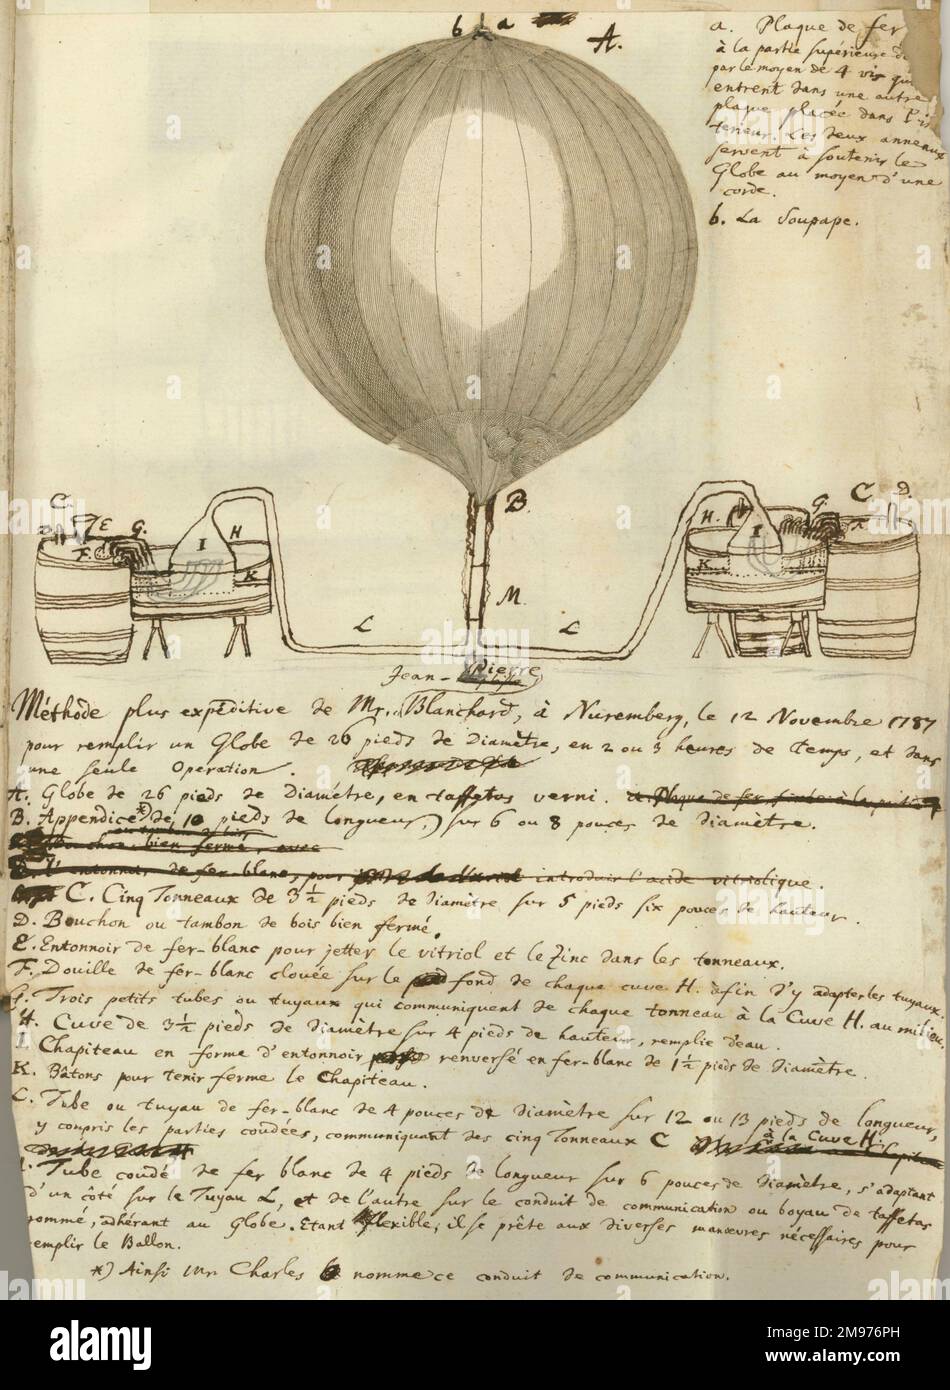 b a A.
a. Plaque de fer
à la partie supérieure
par le moyen de 4 vis
entrent dans une autre
plaque placée dans l'in
terieur. Les deux anneaux
servent à soutenir le
Globe au moyen d'une
corde.
b. La Soupape.
C. E G. H C. D.
F. I H. I G. F
K B. K
L M. L
Jean-Pierre
Méthode plus expéditive de Mr. Blanchard, à Nuremberg, le 12 Novembre 1787
pour remplir un Globe de 26 pieds de Diamètre, en 2 ou 3 heures de Temps, et dans
une seule Operation.
A. Globe de 26 pieds de Diamétre, en taffetas verni.
B. Appendice *) de 10 pieds de longueur, sur 6 ou 8 pouces de diamètre.
l'entonnoir de fer-blanc, pour introduire l'acide vitriolique.
C. Cinq Tonneaux de 3½ pieds de diamètre sur 5 pieds six pouces de hauteur.
D. Bouchon ou tambon de bois bien fermé.
E. Entonnoir de fer-blanc pour jetter le vitriol et le Zinc dans les tonneaux.
F. Douille de fer-blanc clouée sur le fond de chaque cuve H. afin d'y adapter les tuyaux.
G. Trois petits tubes ou tuyaux qui communiquent de chaque tonneau à la Cuve H. au milieu,
H. Cuve de 3½ pieds de diamètre sur 4 pieds de hauteur, remplie d'eau.
I. Chapiteau en forme d'entonnoir renversé en fer-blanc de 1½ pieds de diamètre.
K. Bâtons pour tenir ferme le Chapiteau.
L. Tube ou tuyau de fer-blanc de 4 pouces de diamètre sur 12 ou 13 pieds de longueur,
y compris les parties coudées, communiquant des cinq Tonneaux C à la Cuve H.
Tube coudé de fer blanc de 4 pieds de longueur sur 6 pouces de diamètre, s'adaptant
d'un côté sur le Tuyau L, et de l'autre sur le conduit de communication ou boyau de taffetas
gommé, adhérant au Globe. Etant flexible, il se prête aux diverses manœuvres nécessaires pour
remplir le Ballon.
*) Ainsi Mr Charles nomme ce conduit de communication.
alamy
Image ID: 2M976PH
www.alamy.com